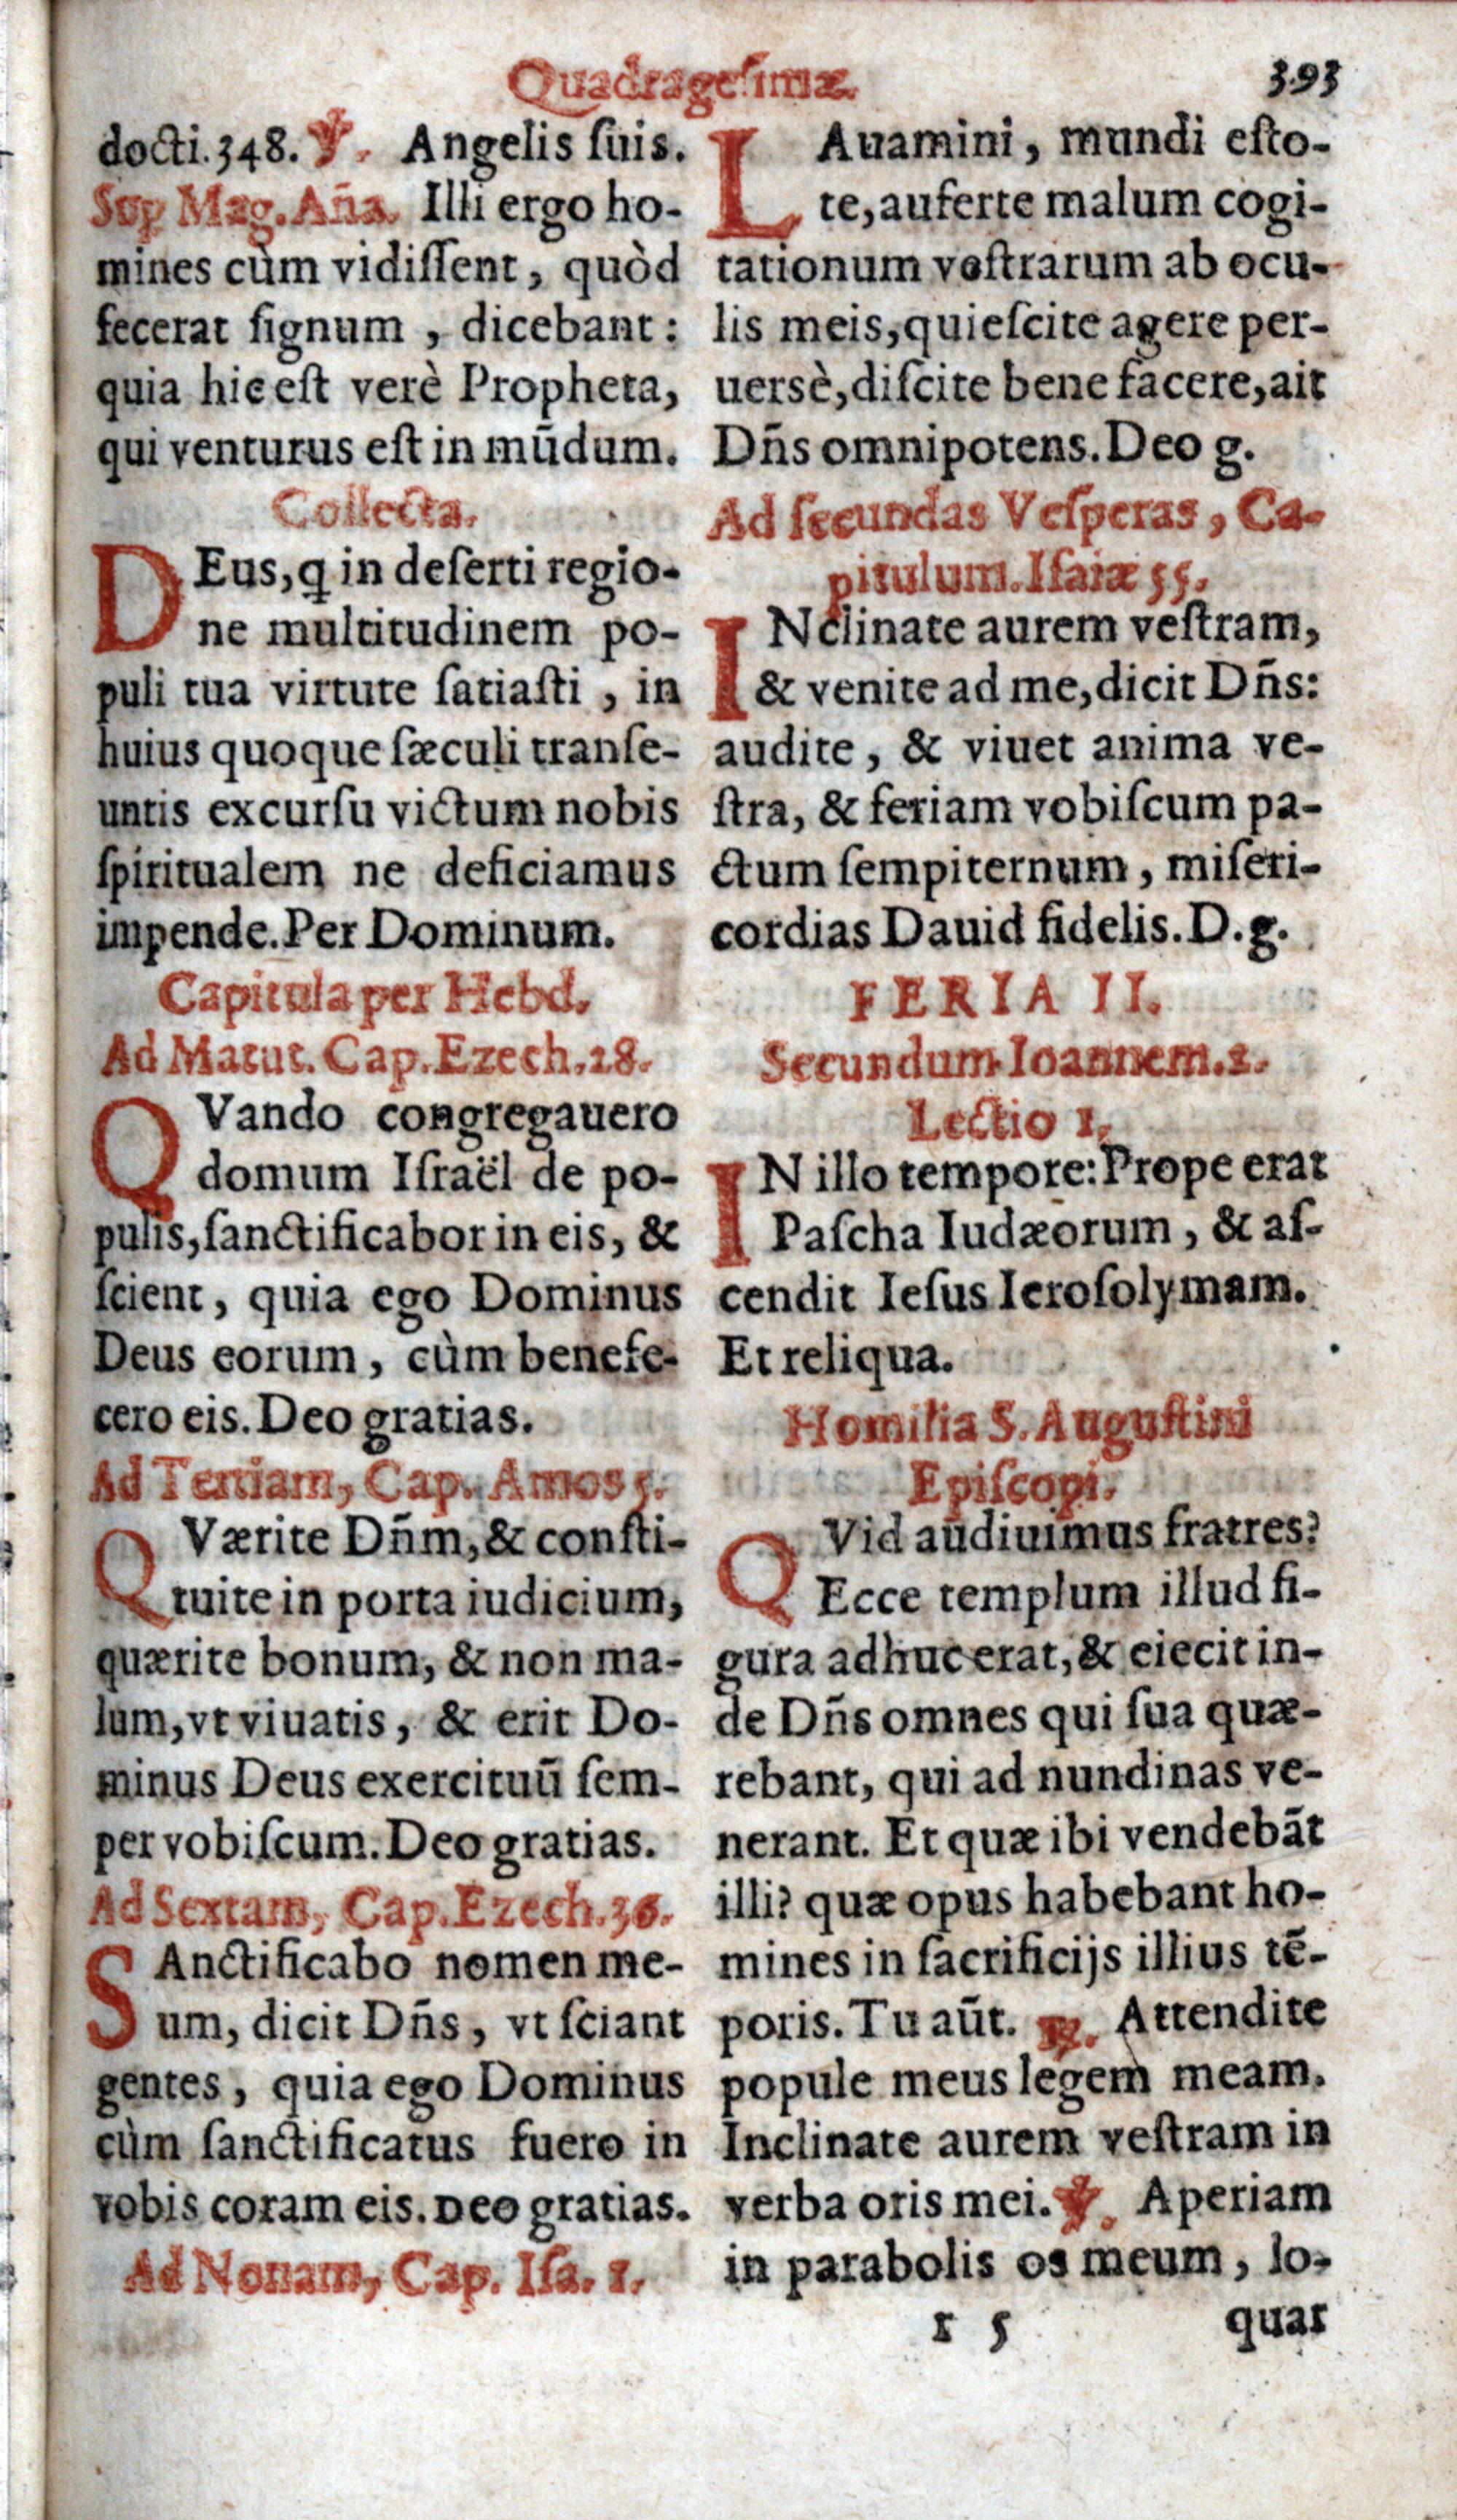 Quadragesimæ. 393
docti.348. ℣. Angelis ſuis.
Sup Mag. Aña. Illi ergo ho-
mines cùm vidiſſent, quòd
fecerat ſignum , dicebant :
quia hic eſt verè Propheta,
qui venturus eſt in mūdum.
Collecta.
DEus, ꝗ in deſerti regio-
ne multitudinem po-
puli tua virtute ſatiaſti , in
huius quoque ſæculi tranſe-
untis excurſu victum nobis
ſpiritualem ne deficiamus
impende. Per Dominum.
Capitula per Hebd.
Ad Matut. Cap. Ezech. 28.
QVando congregauero
domum Iſraël de po-
pulis, ſanctificabor in eis, &
ſcient, quia ego Dominus
Deus eorum, cùm benefe-
cero eis. Deo gratias.
Ad Tertiam, Cap. Amos 5.
QVærite Dñm, & conſti-
tuite in porta iudicium,
quærite bonum, & non ma-
lum, vt viuatis, & erit Do-
minus Deus exercituū ſem-
per vobiſcum. Deo gratias.
Ad Sextam, Cap. Ezech. 36.
SAnctificabo nomen me-
um, dicit Dñs, vt ſciant
gentes, quia ego Dominus
cùm ſanctificatus fuero in
vobis coram eis. Deo gratias.
Ad Nonam, Cap. Iſa. 1.
LAuamini, mundi eſto-
te, auferte malum cogi-
tationum veſtrarum ab ocu-
lis meis, quieſcite agere per-
uersè, diſcite bene facere, ait
Dñs omnipotens. Deo g.
Ad ſecundas Veſperas, Ca-
pitulum. Iſaiæ 55.
INclinate aurem veſtram,
& venite ad me, dicit Dñs:
audite, & viuet anima ve-
ſtra, & feriam vobiſcum pa-
ctum ſempiternum, miſeri-
cordias Dauid fidelis. D. g.
FERIA II.
Secundum Ioannem. 2.
Lectio 1.
IN illo tempore: Prope erat
Paſcha Iudæorum, & aſ-
cendit Ieſus Ieroſolymam.
Et reliqua.
Homilia S. Auguſtini
Epiſcopi.
QVid audiuimus fratres?
Ecce templum illud fi-
gura adhuc erat, & eiecit in-
de Dñs omnes qui ſua quæ-
rebant, qui ad nundinas ve-
nerant. Et quæ ibi vendebāt
illi? quæ opus habebant ho-
mines in ſacrificijs illius tē-
poris. Tu aūt. ℟. Attendite
popule meus legem meam.
Inclinate aurem veſtram in
verba oris mei. ℣. Aperiam
in parabolis os meum, lo-
r 5 quar